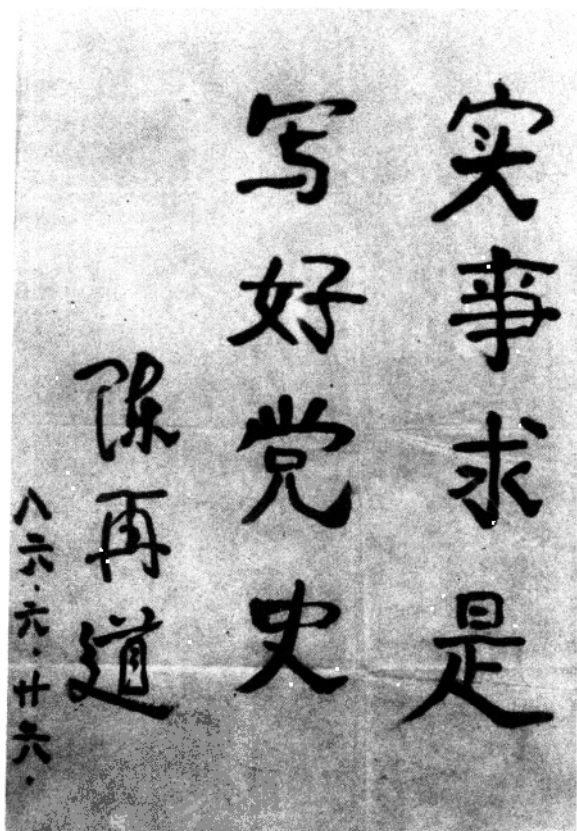 实事求是
写好党史
陈再道
八六·六·廿六·